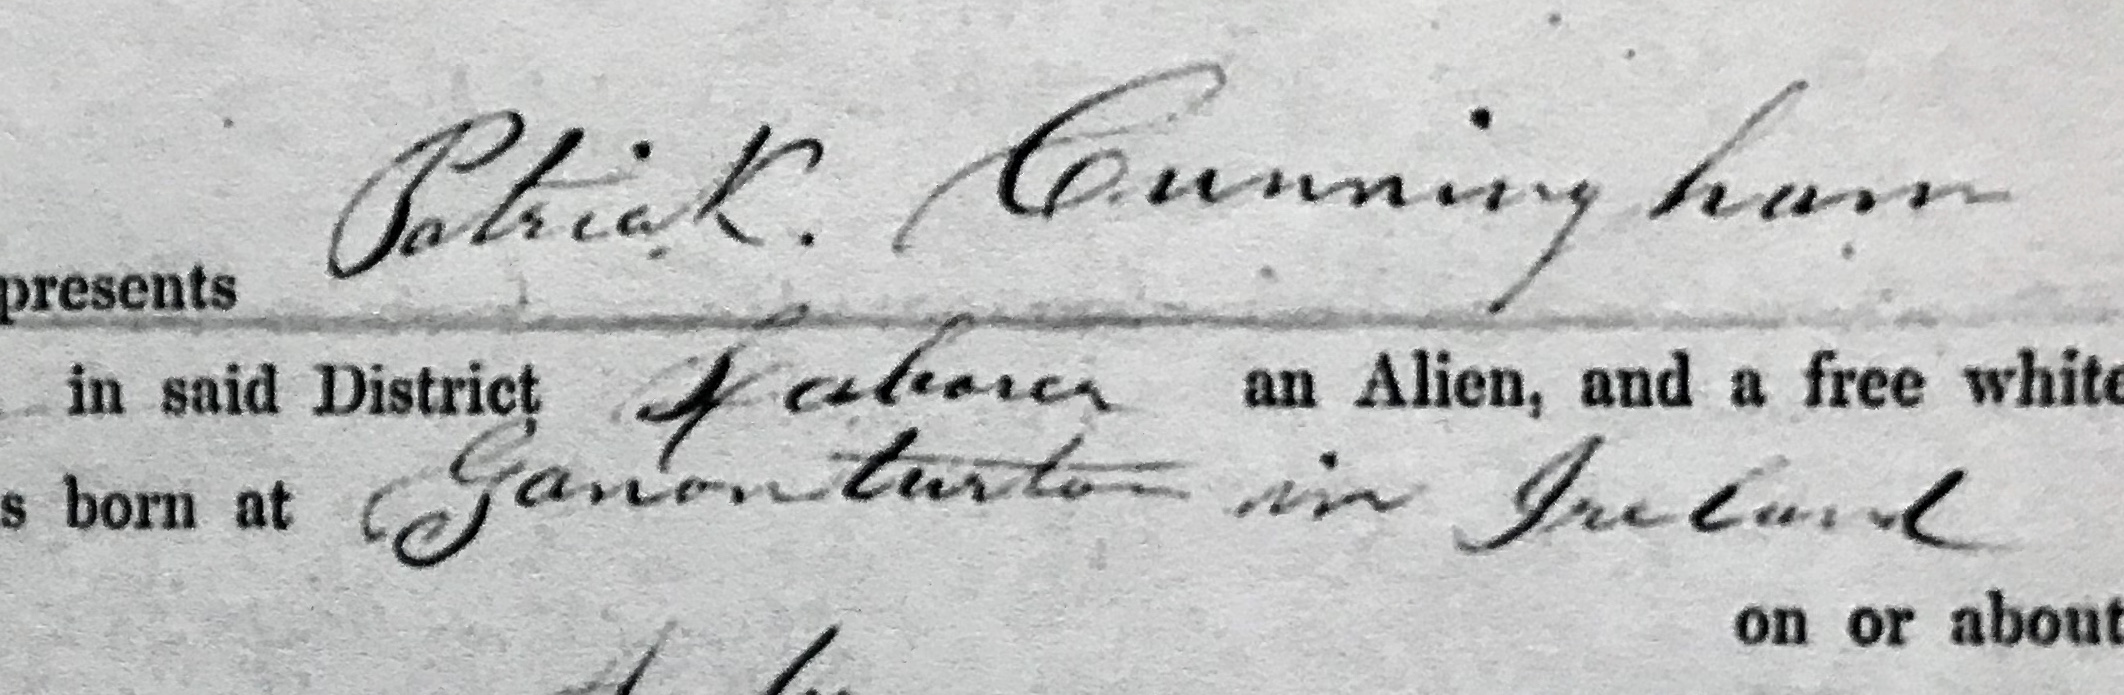 presents Patrick. Cunningham
in said District Laborer an Alien, and a free white
s born at Ganonturton in Ireland
on or about